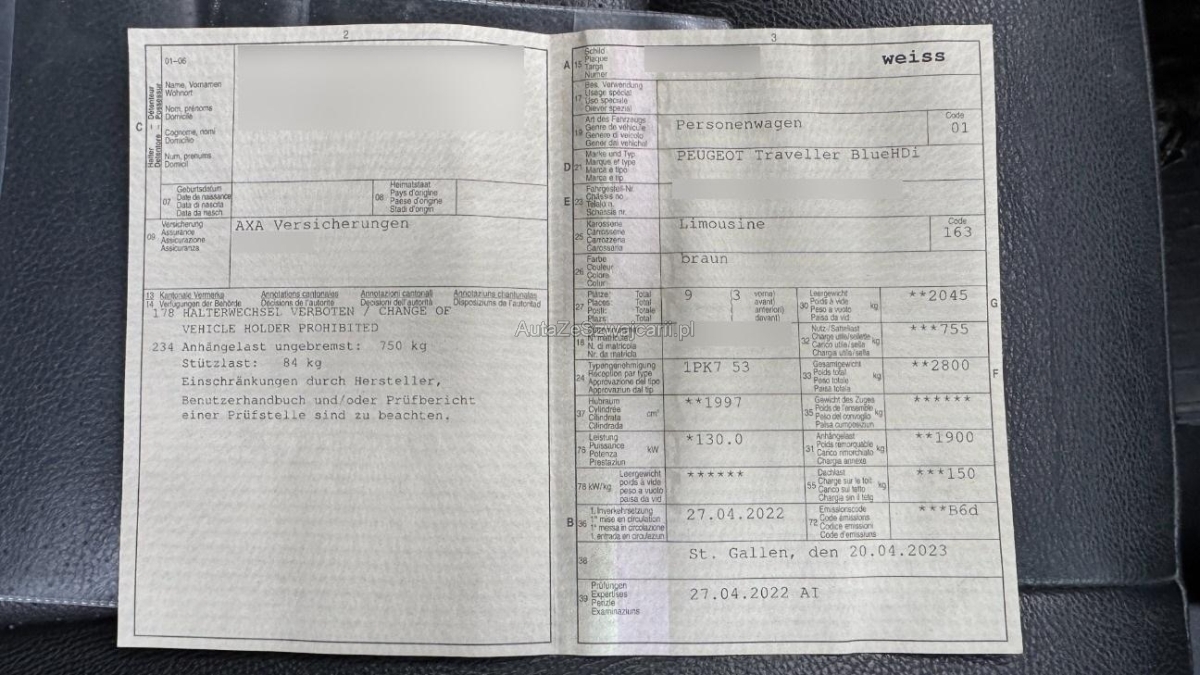 2
01–06
Halter – Détenteur
Detentore – Possessur
C
Name, Vornamen
Wohnort
Nom, prénoms
Domicile
Cognome, nomi
Domicilio
Num, prenums
Domicil
07
Geburtsdatum
Date de naissance
Data di nascita
Data da nasch.
08
Heimatstaat
Pays d'origine
Paese d'origine
Stadi d'origin
09
Versicherung
Assurance
Assicurazione
Assicuranza
AXA Versicherungen
13 Kantonale Vermerke Annotations cantonales Annotazioni cantonali Annotaziuns chantunalas
14 Verfügungen der Behörde Décisions de l'autorité Decisioni dell'autorità Disposiziuns da l'autoritad
178 HALTERWECHSEL VERBOTEN / CHANGE OF
VEHICLE HOLDER PROHIBITED
234 Anhängelast ungebremst: 750 kg
Stützlast: 84 kg
Einschränkungen durch Hersteller,
Benutzerhandbuch und/oder Prüfbericht
einer Prüfstelle sind zu beachten.
3
A 15
Schild
Plaque
Targa
Numer
weiss
17
Bes. Verwendung
Usage spécial
Uso speciale
Diever spezial
19
Art des Fahrzeugs
Genre de véhicule
Genere di veicolo
Gener dal vehichel
Personenwagen
Code
01
D 21
Marke und Typ
Marque et type
Marca e tipo
Marca e tip
PEUGEOT Traveller BlueHDi
E 23
Fahrgestell-Nr.
Châssis no
Telaio n.
Schassis nr.
25
Karosserie
Carrosserie
Carrozzeria
Carossaria
Limousine
Code
163
26
Farbe
Couleur
Colore
Colur
braun
27
Plätze: Total
Places: Total
Posti: Totale
Plazs: Total
9 (3 vorne)
( avant)
( anteriori)
( davant)
30
Leergewicht
Poids à vide
Peso a vuoto
Paisa da vid
kg
**2045
G
18
N° matricule
N. di matricola
Nr. da matricla
32
Nutz-/Sattellast
Charge utile/sellette
Carico utile/sella
Chargia utila/sella
kg
***755
24
Typengenehmigung
Réception par type
Approvazione del tipo
Approvaziun dal tip
1PK7 53
33
Gesamtgewicht
Poids total
Peso totale
Paisa totala
kg
**2800
F
37
Hubraum
Cylindrée
Cilindrata
Cilindrada
cm³
**1997
35
Gewicht des Zuges
Poids de l'ensemble
Peso del convoglio
Paisa cumposiziun
kg
******
76
Leistung
Puissance
Potenza
Prestaziun
kW
*130.0
31
Anhängelast
Poids remorquable
Carico rimorchiato
Chargia annexa
kg
**1900
78 kW/kg
Leergewicht
poids à vide
peso a vuoto
paisa da vid
******
55
Dachlast
Charge sur le toit
Carico sul tetto
Chargia sin il tetg
kg
***150
B 36
1. Inverkehrsetzung
1re mise en circulation
1a messa in circolazione
1. entrada en circulaziun
27.04.2022
72
Emissionscode
Code émissions
Codice emissioni
Code d'emissiuns
***B6d
38
St. Gallen, den 20.04.2023
39
Prüfungen
Expertises
Perizie
Examinaziuns
27.04.2022 AI
AutaZeSzwajcarii.pl